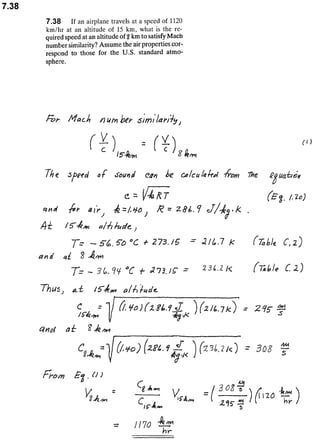 7.38
7.38 If an airplane travels at a speed of 1120
km/hr at an altitude of 15 km, what is the re-
quired speed at an altitude of 8 km to satisfy Mach
number similarity? Assume the air properties cor-
respond to those for the U.S. standard atmo-
sphere.
For Mach number similarity,
(V/c)15km = (V/c)8km (1)
The speed of sound can be calculated from the equation
c = √kRT (Eq. 1.20)
and for air, k = 1.40, R = 286.9 J/kg·K.
At 15 km altitude,
T = -56.50 °C + 273.15 = 216.7 K (Table C.2)
and at 8 km
T = -36.94 °C + 273.15 = 236.2 K (Table C.2)
Thus, at 15 km altitude
c15km = √(1.40)(286.9 J/kg·K)(216.7K) = 295 m/s
and at 8 km
c8km = √(1.40)(286.9 J/kg·K)(236.2K) = 308 m/s
From Eq. (1)
V8km = c8km/c15km V15km = (308 m/s / 295 m/s)(1120 km/hr)
= 1170 km/hr